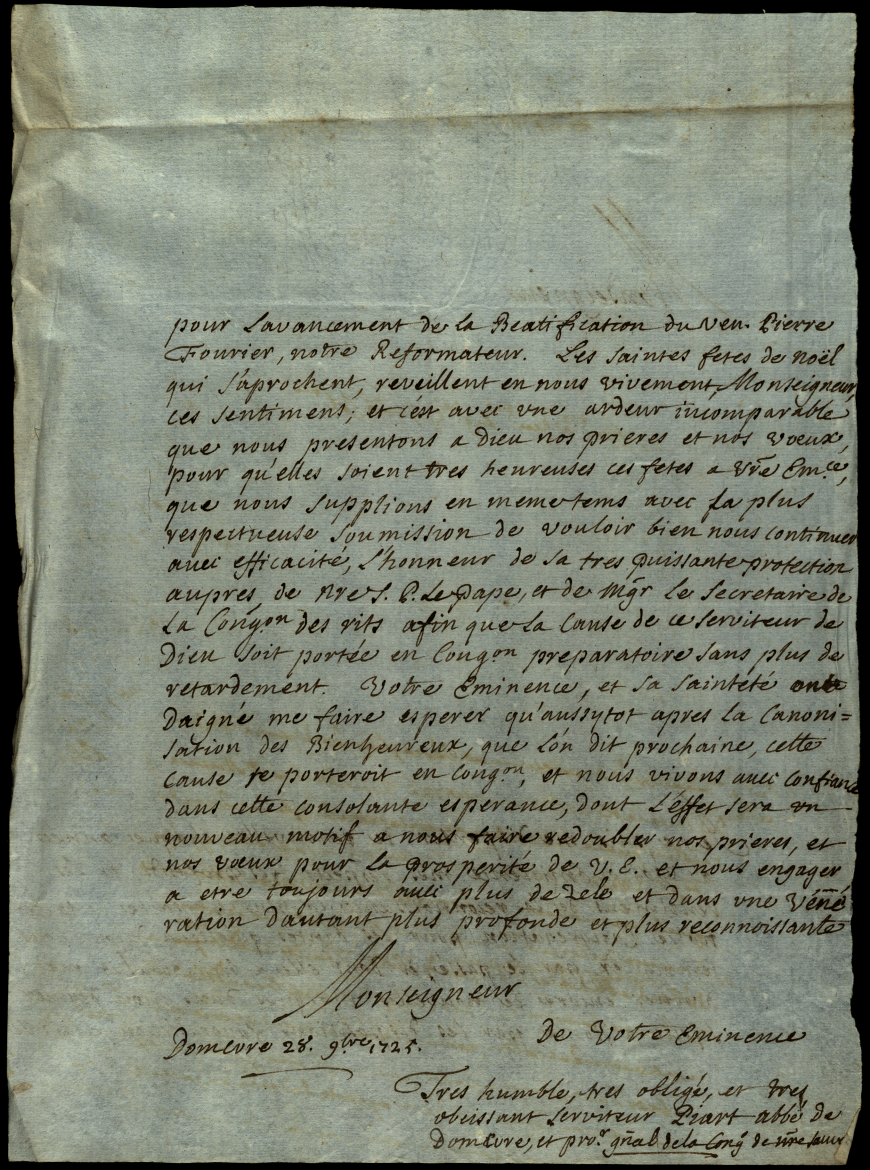 pour Lavancement de la Beatification du Ven. Pierre
Fourier, notre Reformateur. Les saintes fetes de noël
qui s'aprochent, reveillent en nous vivement, Monseigneur,
ces sentimens; et c'est avec vne ardeur incomparable
que nous presentons a Dieu nos prieres et nos voeux,
pour qu'elles soient tres heureuses ces fetes a Vre Em.ce,
que nous supplions en meme tems avec la plus
respectueuse soumission de vouloir bien nous continuer
avec efficacité, L'honneur de sa tres puissante protection
aupres de Nre S. P. Le pape, et de Mgr le Secretaire de
La Congon des rits afin que la Cause de ce serviteur de
Dieu soit portée en Congon preparatoire sans plus de
retardement. Votre Eminence, et sa sainteté ont
Daigné me faire esperer qu'aussytot apres la Canoni=
sation des Bienheureux, que L'on dit prochaine, cette
Cause se porteroit en Congon, et nous vivons avec confiance
dans cette consolante esperance, dont L'effet sera vn
nouveau motif a nous faire redoubler nos prieres, et
nos voeux pour La prosperité de V. E. et nous engager
a etre toujours avec plus de zele et dans vne Véné
ration d'autant plus profonde et plus reconnoissante
Monseigneur
De Votre Eminence
Domevre 28. 9bre 1725.
Tres humble, tres obligé, et tres
obeissant serviteur Piart abbé de
Domevre, et pro.r gñal de la Cong de nre sauv